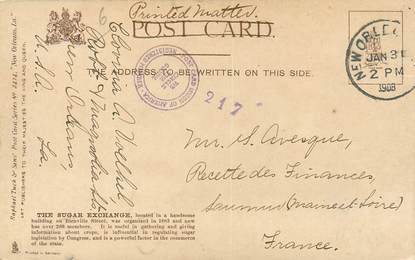 Printed Matter.
POST CARD.
THE ADDRESS TO BE WRITTEN ON THIS SIDE.
NEW ORLE
JAN 31
2 PM
1908
217
6
A.
& Magnolia Sts.
New Orleans,
La.
U.S.A.
Mr. G. Avesque,
Recette des Finances,
Saumur (Maine et Loire)
France.
Raphael Tuck & Sons' Post Card Series No. 2272. "New Orleans, La."
ART PUBLISHERS TO THEIR MAJESTIES THE KING AND QUEEN.
THE SUGAR EXCHANGE, located in a handsome
building on Bienville Street, was organized in 1883 and now
has over 200 members. It is useful in gathering and giving
information about crops, is influential in regulating sugar
legislation by Congress, and is a powerful factor in the commerce
of the state.